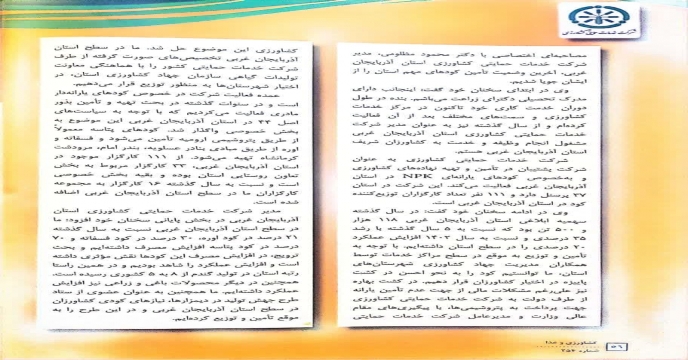 شرکت خدمات حمایتی کشاورزی
مصاحبه‌ای اختصاصی با دکتر محمود مظلومی، مدیر
شرکت خدمات حمایتی کشاورزی استان آذربایجان
غربی، آخرین وضعیت تأمین کودهای مهم استان را از
ایشان جویا شدیم.
وی در ابتدای سخنان خود گفت: اینجانب دارای
مدرک تحصیلی دکترای زراعت می‌باشم. بنده در طول
دوران خدمت کاری خود تاکنون در مرکز خدمات
کشاورزی و سمت‌های مختلف بعد از آن فعالیت
کرده‌ام و از سال گذشته نیز به عنوان مدیر شرکت
خدمات حمایتی کشاورزی استان آذربایجان غربی
مشغول انجام وظیفه و خدمت به کشاورزان شریف
استان آذربایجان غربی هستم.
شرکت خدمات حمایتی کشاورزی به عنوان
شرکت پشتیبان در تأمین و تهیه نهاده‌های کشاورزی
و به‌خصوص کودهای یارانه‌ای NPK در استان
آذربایجان غربی فعالیت می‌کند. این شرکت در استان
۲۷ پرسنل دارد و ۱۱۱ نفر تعداد کارگزاران توزیع‌کننده
کود در استان آذربایجان غربی است.
وی در ادامه سخنان خود گفت: در سال گذشته
سهمیه ابلاغی استان آذربایجان غربی ۱۶۸ هزار
و ۵۰۰ تن بود که نسبت به ۵ سال گذشته با رشد
۲۵ درصدی و نسبت به سال ۱۴۰۲ افزایش عملکرد
۲۰ درصدی را در سطح استان داشته‌ایم. با توجه به
تأمین و توزیع به موقع در سطح مراکز خدمات توسط
همکاران مدیریت جهاد کشاورزی شهرستان‌های
استان، ما توانستیم کود را به نحو احسن در کشت
پاییزه در اختیار کشاورزان قرار دهیم. در کشت بهاره
نیز علی‌رغم مشکلات مالی از جهت عدم تأمین یارانه
از طرف دولت به شرکت خدمات حمایتی کشاورزی
جهت پرداخت به پتروشیمی‌ها، با پیگیری‌های مقام
عالی وزارت و مدیرعامل شرکت خدمات حمایتی
کشاورزی این موضوع حل شد. ما در سطح استان
آذربایجان غربی تخصیص‌های صورت گرفته از طرف
شرکت خدمات حمایتی کشور را با هماهنگی معاونت
تولیدات گیاهی سازمان جهاد کشاورزی استان، در
اختیار شهرستان‌ها به منظور توزیع قرار می‌دهیم.
عمده فعالیت شرکت در خصوص کودهای یارانه‌دار
است و در سنوات گذشته در بحث تهیه و تأمین بذور
مادری فعالیت می‌کردیم که با توجه به سیاست‌های
اصل ۴۴ در استان آذربایجان غربی این موضوع به
بخش خصوصی واگذار شد. کودهای پتاسه معمولاً
از طریق پتروشیمی ارومیه تأمین می‌شود و فسفاته و
اوره از طریق مبادی بنادر عسلویه، بندر امام، مرودشت
کرمانشاه تهیه می‌شود. از ۱۱۱ کارگزار موجود در
استان آذربایجان غربی، ۳۳ کارگزار مربوط به بخش
تعاون روستایی استان بوده و بقیه بخش خصوصی
است و نسبت به سال گذشته ۱۶ کارگزار به مجموعه
کارگزاران ما در سطح استان آذربایجان غربی اضافه
شده است.
مدیر شرکت خدمات حمایتی کشاورزی استان
آذربایجان غربی در بخش پایانی سخنان خود افزود: ما
در سطح استان آذربایجان غربی نسبت به سال گذشته
۲۱ درصد در کود اوره، ۳۰ درصد در کود فسفاته و ۷۰
درصد در کود پتاسه افزایش مصرف داشته‌ایم و بحث
ترویج، در افزایش مصرف این کودها نقش مؤثری داشته
است و افزایش عملکرد را شاهد بودیم و در همین راستا
رتبه استان در تولید گندم از ۸ به ۵ کشوری رسیده است.
همچنین در دیگر محصولات باغی و زراعی نیز افزایش
عملکرد داشته‌ایم. ما همچنین به عنوان عضوی از ستاد
طرح جهش تولید در دیمزارها، نیازهای کودی کشاورزان
در سطح استان آذربایجان غربی و در این طرح را به
موقع تأمین و توزیع کرده‌ایم.
کشاورزی و غذا
شماره ۲۵۶
۵۶